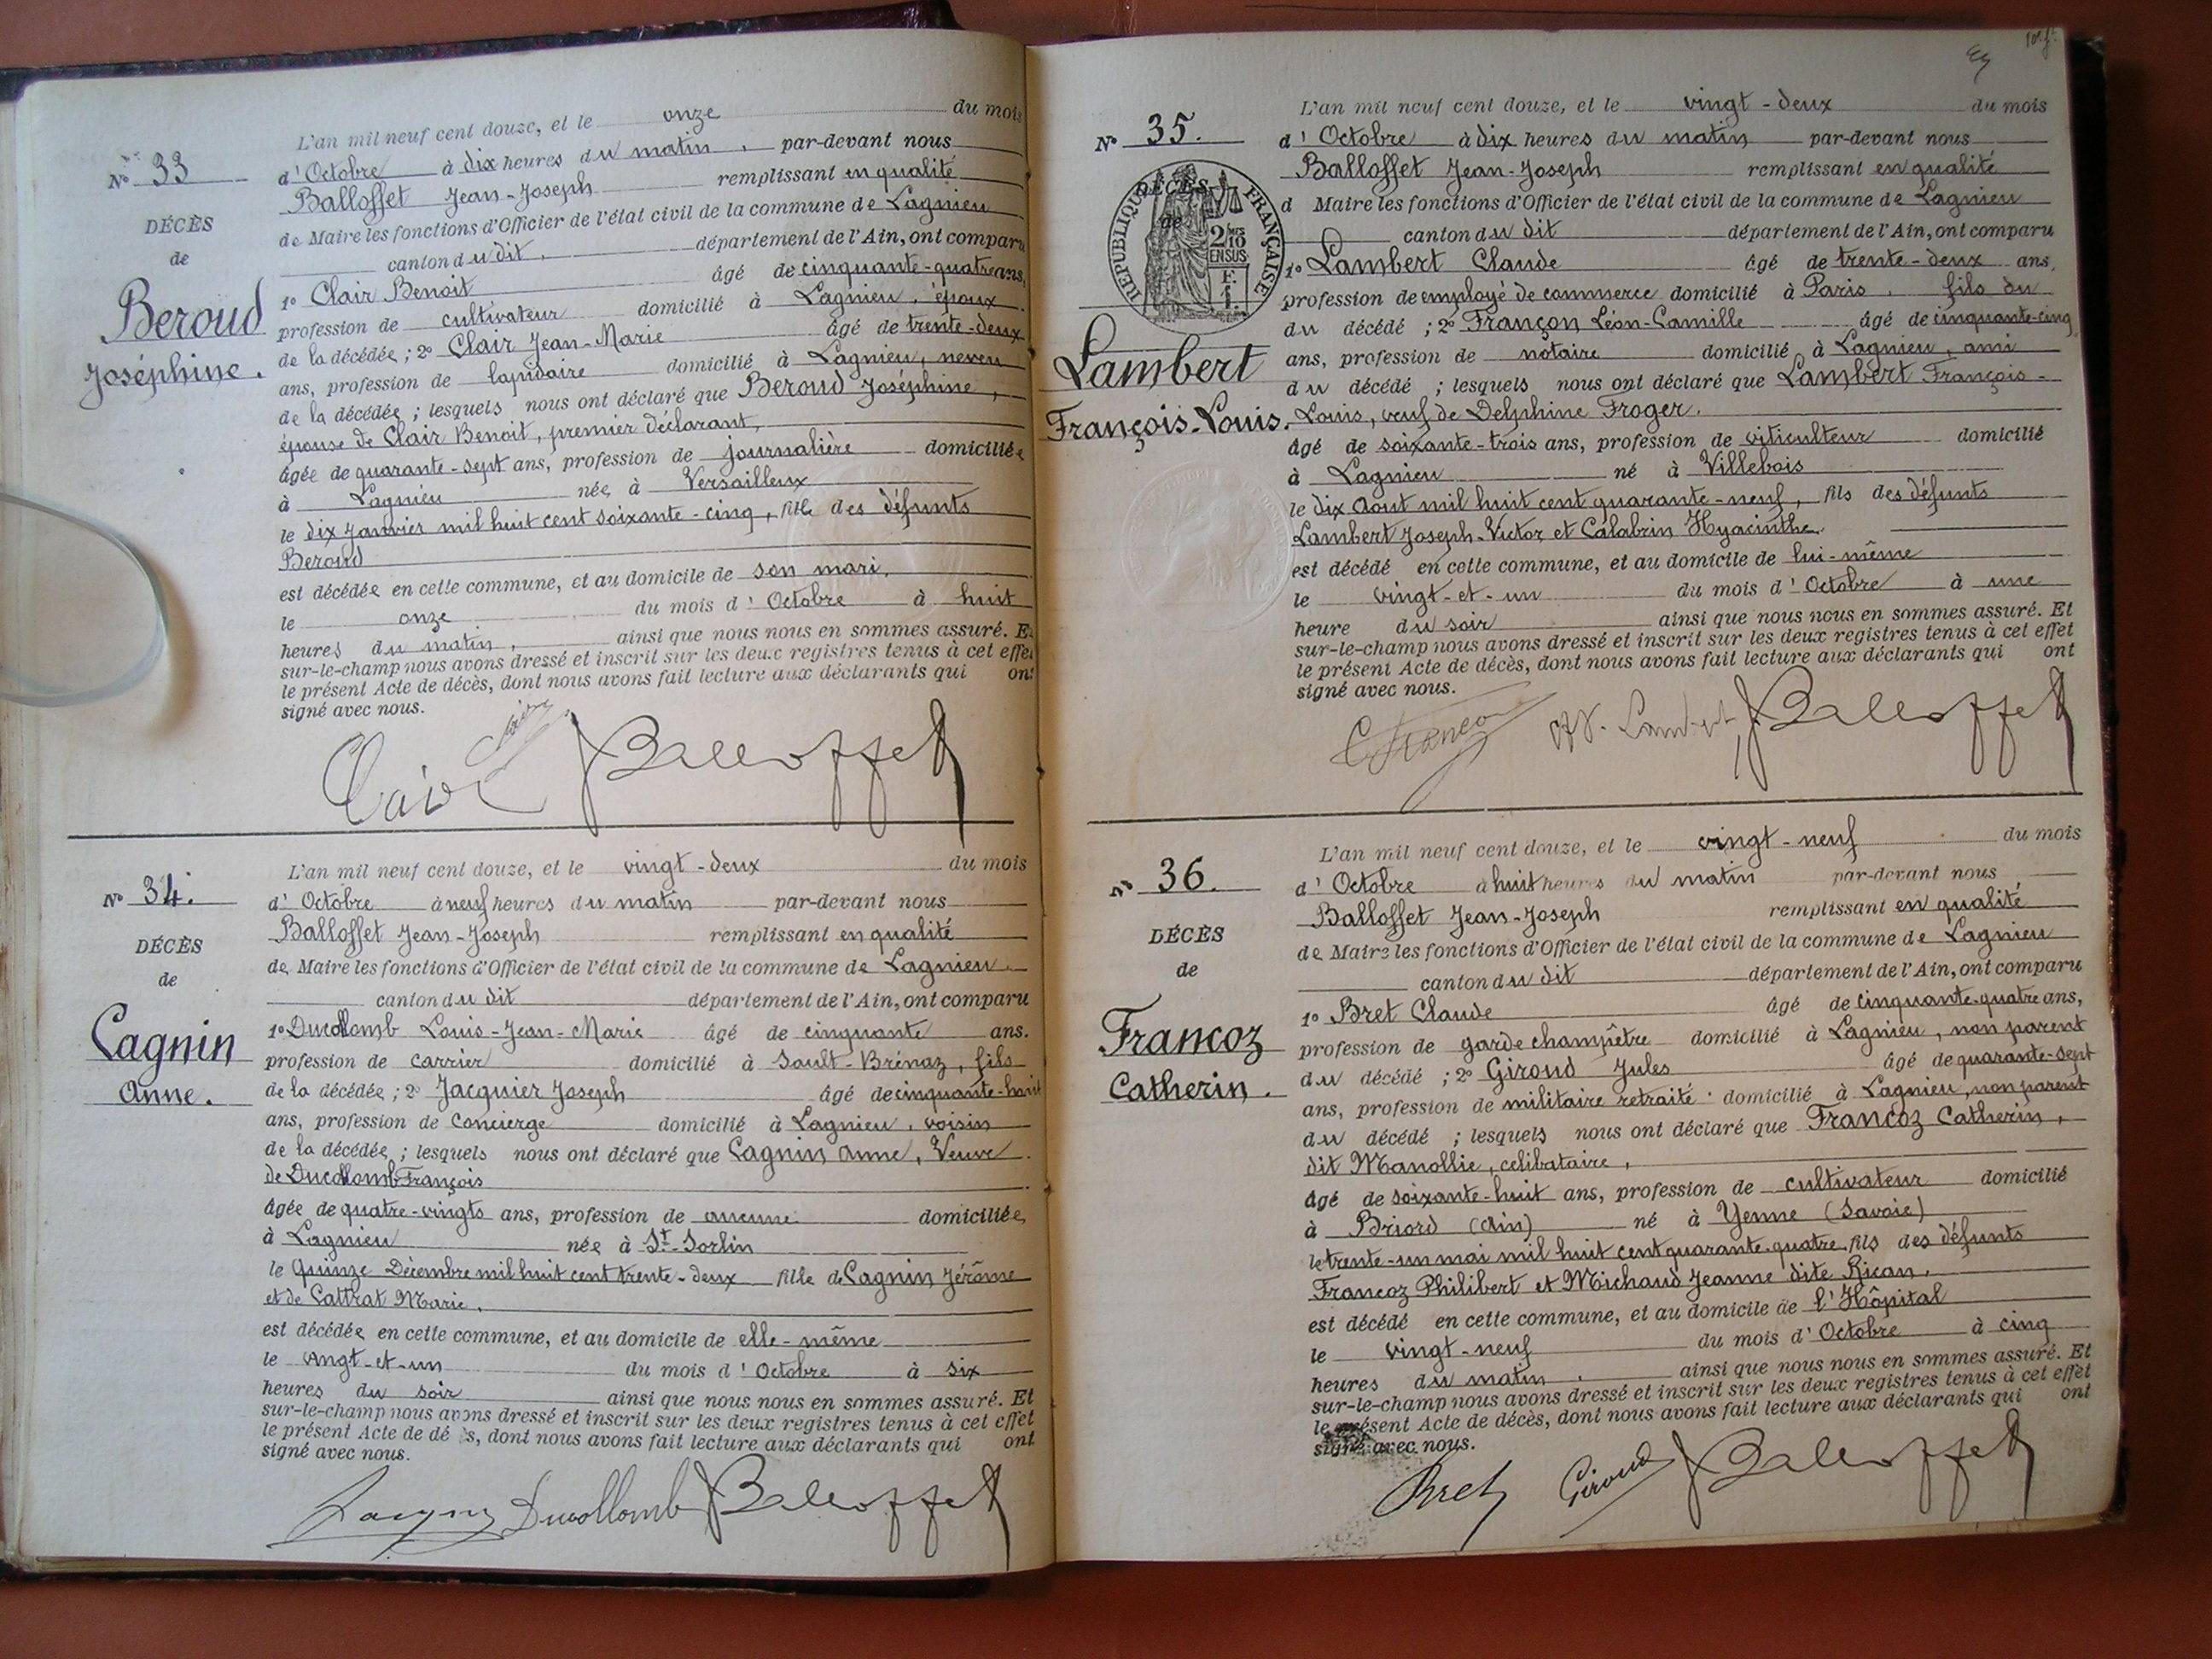 L'an mil neuf cent douze, et le onze du mois
N° 33
d'Octobre à dix heures du matin, par-devant nous
Balloffet Jean-Joseph remplissant en qualité
DÉCÈS
de Maire les fonctions d'Officier de l'état civil de la commune de Lagnieu
de
canton du dit, département de l'Ain, ont comparu
Beroud
Joséphine.
1° Clair Benoit âgé de cinquante-quatre ans,
profession de cultivateur domicilié à Lagnieu, époux
de la décédée ; 2° Clair Jean-Marie âgé de trente-deux
ans, profession de lapidaire domicilié à Lagnieu, neveu
de la décédée ; lesquels nous ont déclaré que Beroud Joséphine,
épouse de Clair Benoit, premier déclarant,
âgée de quarante-sept ans, profession de journalière domiciliée
à Lagnieu née à Versailleux
le dix Janvier mil huit cent soixante-cinq, fille des défunts
Beroud
est décédée en cette commune, et au domicile de son mari,
le onze du mois d'Octobre à huit
heures du matin, ainsi que nous nous en sommes assuré. Et
sur-le-champ nous avons dressé et inscrit sur les deux registres tenus à cet effet
le présent Acte de décès, dont nous avons fait lecture aux déclarants qui ont
signé avec nous.
Clair Clair Balloffet
L'an mil neuf cent douze, et le vingt-deux du mois
N° 34.
d'Octobre à neuf heures du matin par-devant nous
Balloffet Jean-Joseph remplissant en qualité
DÉCÈS
de Maire les fonctions d'Officier de l'état civil de la commune de Lagnieu
de
canton du dit département de l'Ain, ont comparu
Cagnin
Anne.
1° Ducollomb Louis-Jean-Marie âgé de cinquante ans.
profession de carrier domicilié à Sault-Brénaz, fils
de la décédée ; 2° Jacquier Joseph âgé de cinquante-huit
ans, profession de Concierge domicilié à Lagnieu, voisin
de la décédée ; lesquels nous ont déclaré que Cagnin Anne, Veuve
de Ducollomb François
âgée de quatre-vingts ans, profession de aucune domiciliée
à Lagnieu née à St-Sorlin
le quinze Décembre mil huit cent trente-deux fille de Cagnin Jérôme
et de Cattrat Marie.
est décédée en cette commune, et au domicile de elle-même
le vingt-et-un du mois d'Octobre à six
heures du soir ainsi que nous nous en sommes assuré. Et
sur-le-champ nous avons dressé et inscrit sur les deux registres tenus à cet effet
le présent Acte de décès, dont nous avons fait lecture aux déclarants qui ont
signé avec nous.
Ducollomb Balloffet
L'an mil neuf cent douze, et le vingt-deux du mois
N° 35.
d'Octobre à dix heures du matin par-devant nous
Balloffet Jean-Joseph remplissant en qualité
DÉCÈS
de
RÉPUBLIQUE FRANÇAISE
2/10 EN SUS
d Maire les fonctions d'Officier de l'état civil de la commune de Lagnieu
canton du dit département de l'Ain, ont comparu
Lambert
François-Louis.
1° Lambert Claude âgé de trente-deux ans,
profession de employé de commerce domicilié à Paris, fils du
du décédé ; 2° Françon Léon-Camille âgé de cinquante-cinq
ans, profession de notaire domicilié à Lagnieu, ami
du décédé ; lesquels nous ont déclaré que Lambert François-
Louis, veuf de Delphine Froger.
âgé de soixante-trois ans, profession de viticulteur domicilié
à Lagnieu né à Villebois
le dix Aout mil huit cent quarante-neuf, fils des défunts
Lambert Joseph-Victor et Calabrin Hyacinthe.
est décédé en cette commune, et au domicile de lui-même
le vingt-et-un du mois d'Octobre à une
heure du soir ainsi que nous nous en sommes assuré. Et
sur-le-champ nous avons dressé et inscrit sur les deux registres tenus à cet effet
le présent Acte de décès, dont nous avons fait lecture aux déclarants qui ont
signé avec nous.
Lambert Balloffet
L'an mil neuf cent douze, et le vingt-neuf du mois
N° 36.
d'Octobre à huit heures du matin par-devant nous
Balloffet Jean-Joseph remplissant en qualité
DÉCÈS
de Maire les fonctions d'Officier de l'état civil de la commune de Lagnieu
de
canton du dit département de l'Ain, ont comparu
Francoz
Catherin.
1° Bret Claude âgé de cinquante-quatre ans,
profession de garde champêtre domicilié à Lagnieu, non parent
du décédé ; 2° Giroud Jules âgé de quarante-sept
ans, profession de militaire retraité domicilié à Lagnieu, non parent
du décédé ; lesquels nous ont déclaré que Francoz Catherin,
dit Manollie, celibataire,
âgé de soixante-huit ans, profession de cultivateur domicilié
à Briord (Ain) né à Yenne (Savoie)
le trente-un mai mil huit cent quarante-quatre, fils des défunts
Francoz Philibert et Michaud Jeanne dite Rican.
est décédé en cette commune, et au domicile de l'Hôpital
le vingt-neuf du mois d'Octobre à cinq
heures du matin, ainsi que nous nous en sommes assuré. Et
sur-le-champ nous avons dressé et inscrit sur les deux registres tenus à cet effet
le présent Acte de décès, dont nous avons fait lecture aux déclarants qui ont
signé avec nous.
Bret Giroud Balloffet